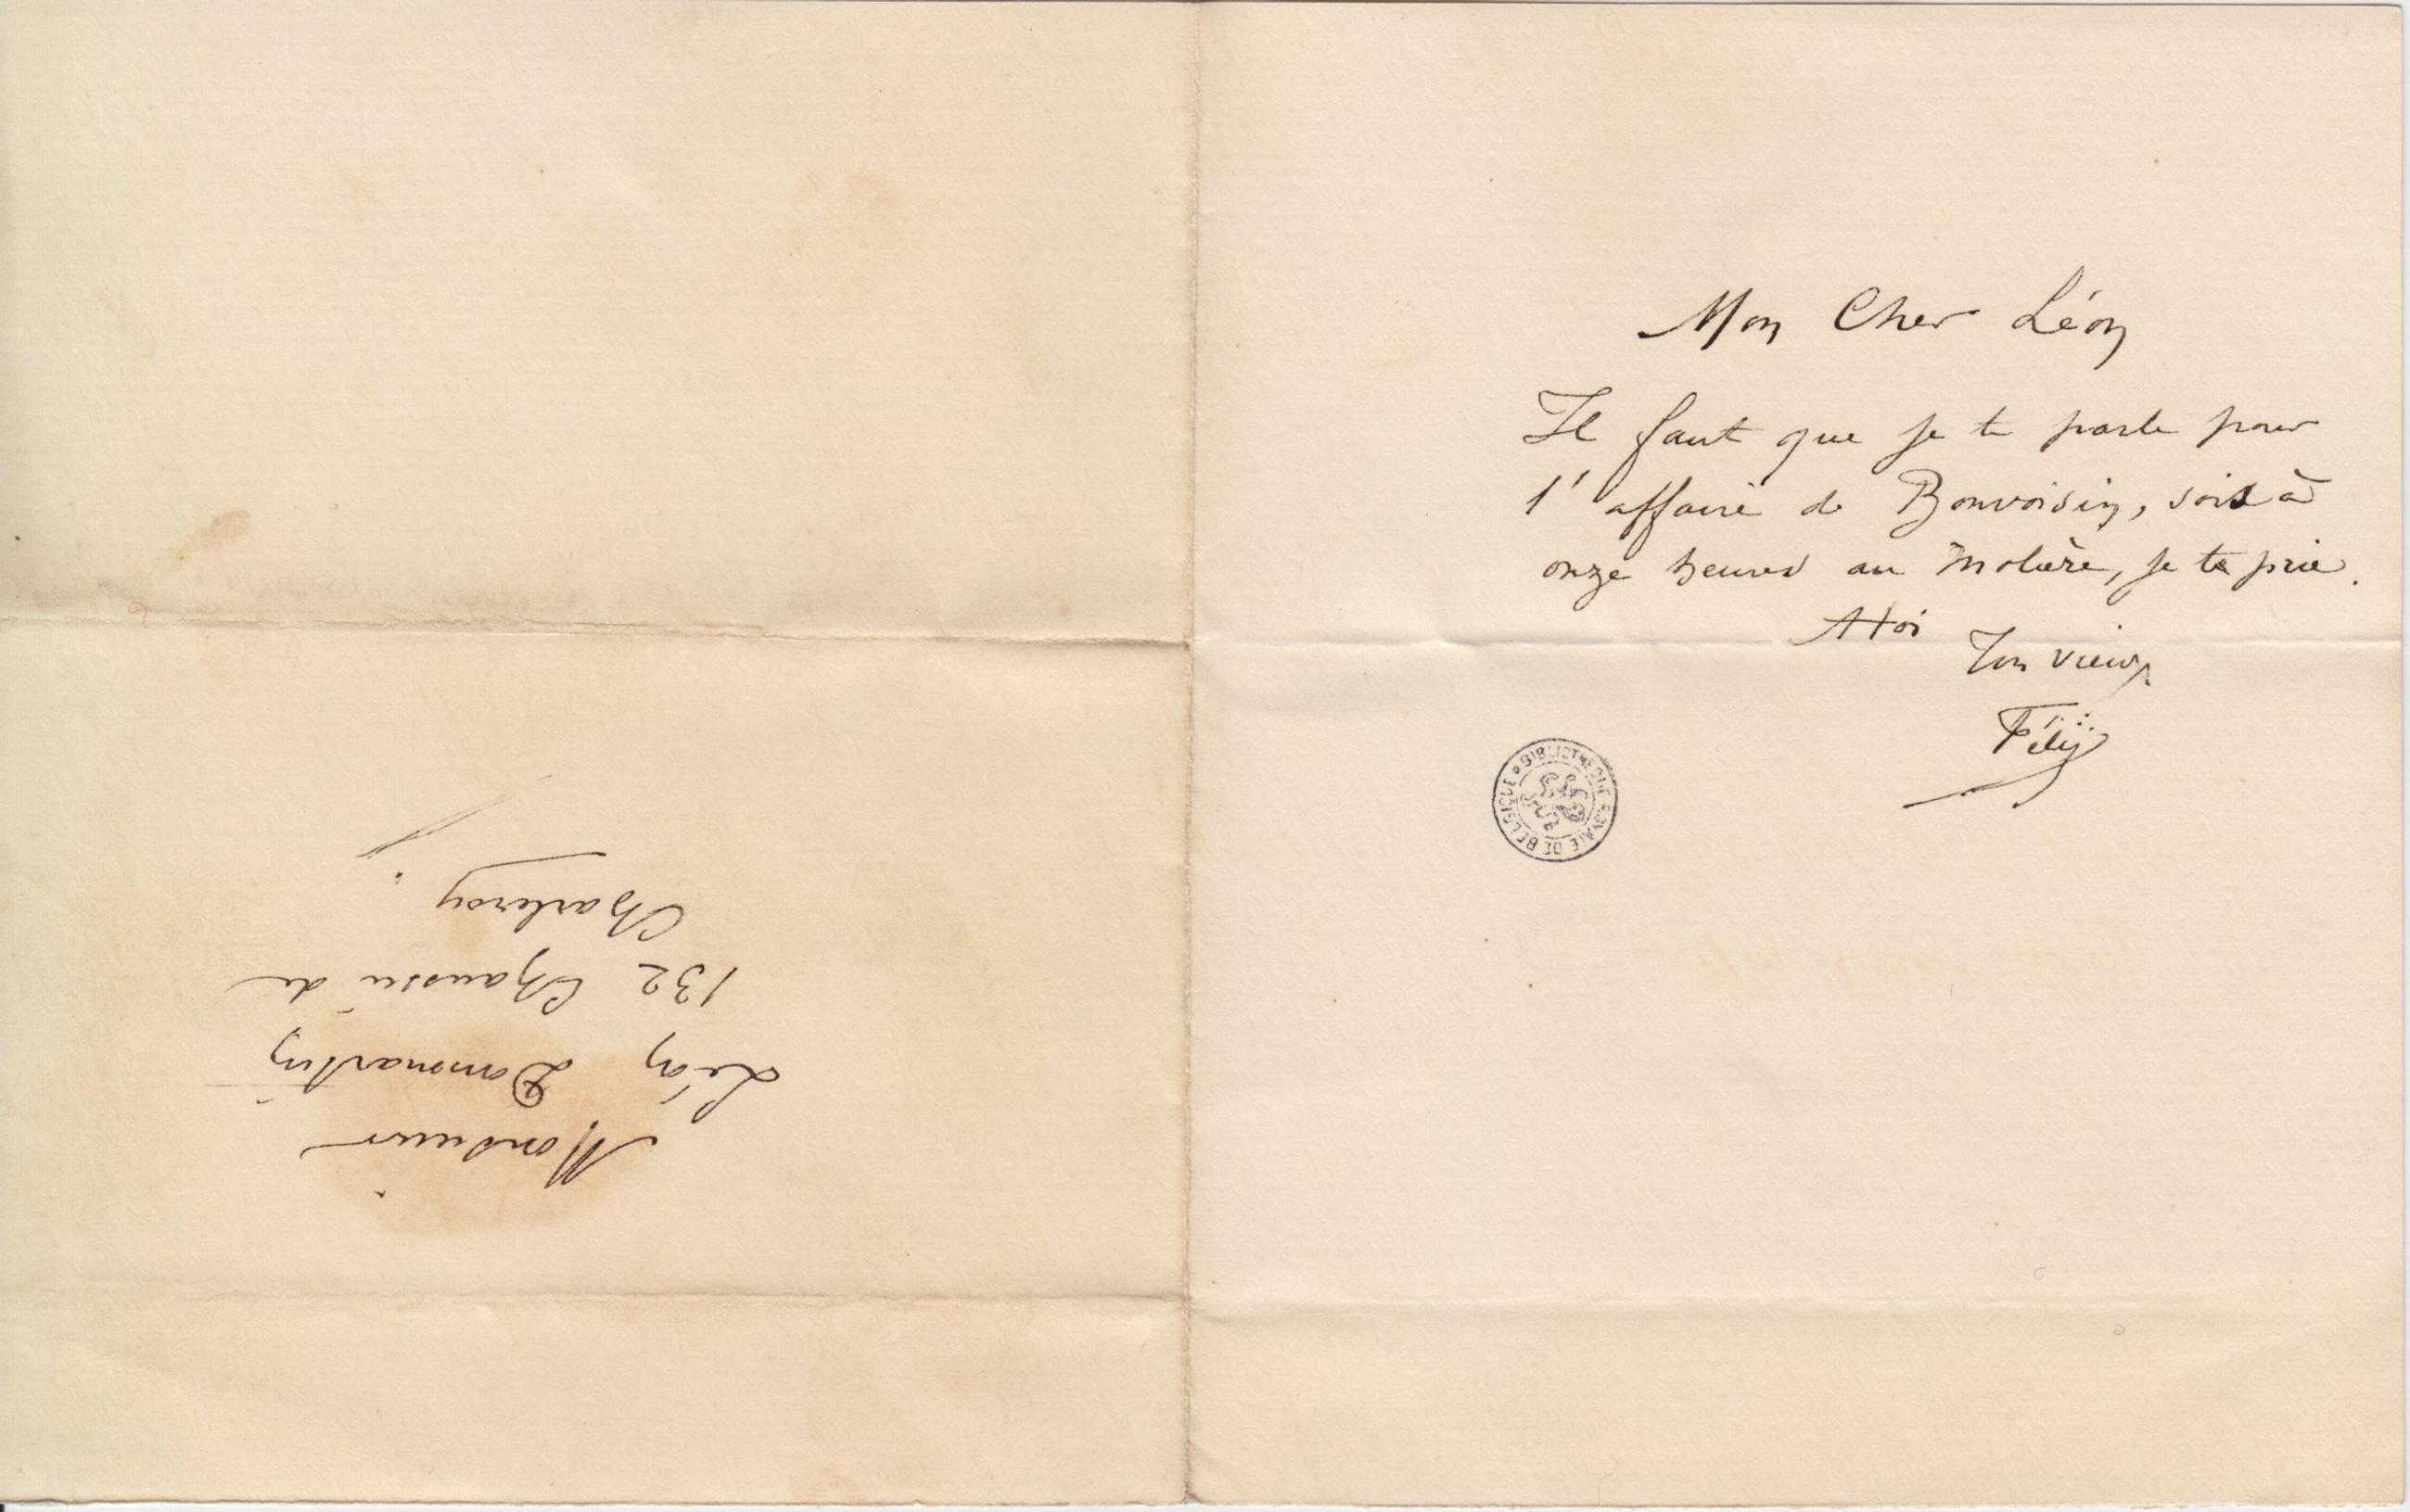 Mon Cher Léon
Il faut que je te parle pour
l'affaire de Bonvoisin, sois à
onze heures au Molière, je te prie.
A toi
Ton vieux
Fély
BIBLIOTHEQUE ROYALE DE BELGIQUE
Monsieur
Léon Dommartin
132 Chaussée de
Charleroy